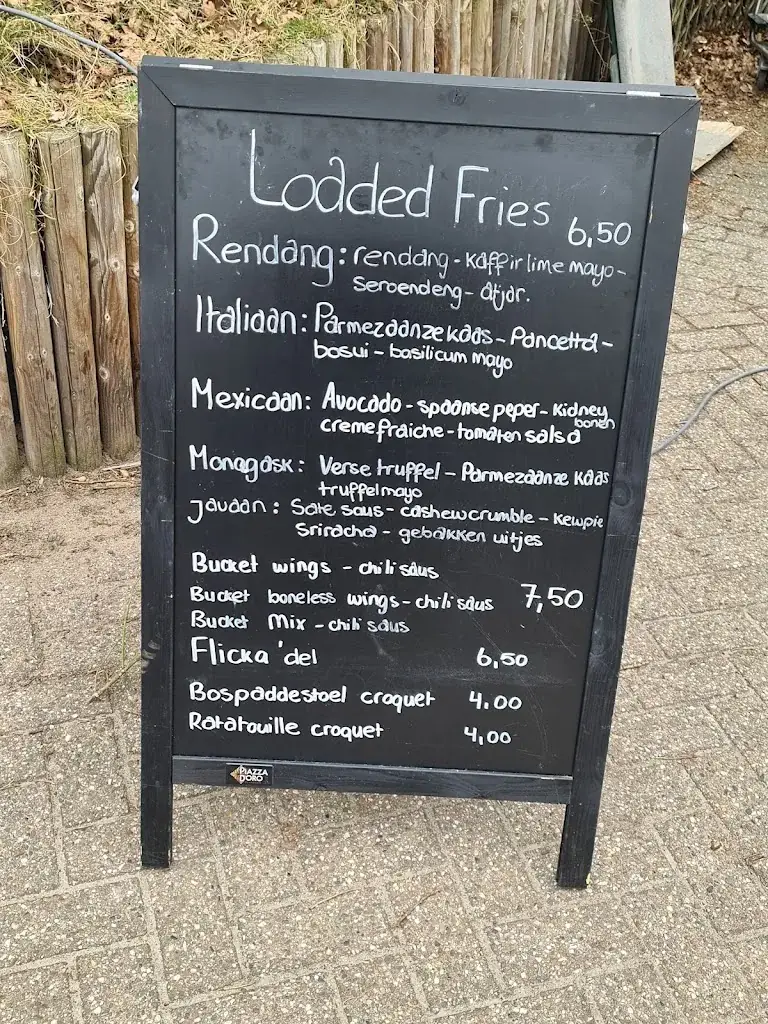 Loaded Fries 6,50
Rendang: rendang - kaffir lime mayo -
Seroendeng - Atjar.
Italiaan: Parmezaanze kaas - Pancetta -
bosui - basilicum mayo
Mexicaan: Avocado - spaanse peper - kidney
bonen
creme fraiche - tomaten salsa
Monogask: Verse truffel - Parmezaanze kaas
truffelmayo
Javaan: Sate saus - cashewcrumble - Kewpie
Sriracha - gebakken uitjes
Bucket wings - chili saus
Bucket boneless wings - chili saus 7,50
Bucket Mix - chili saus
Flicka'del 6,50
Bospaddestoel croquet 4.00
Ratatouille croquet 4,00
PIAZZA
D'ORO